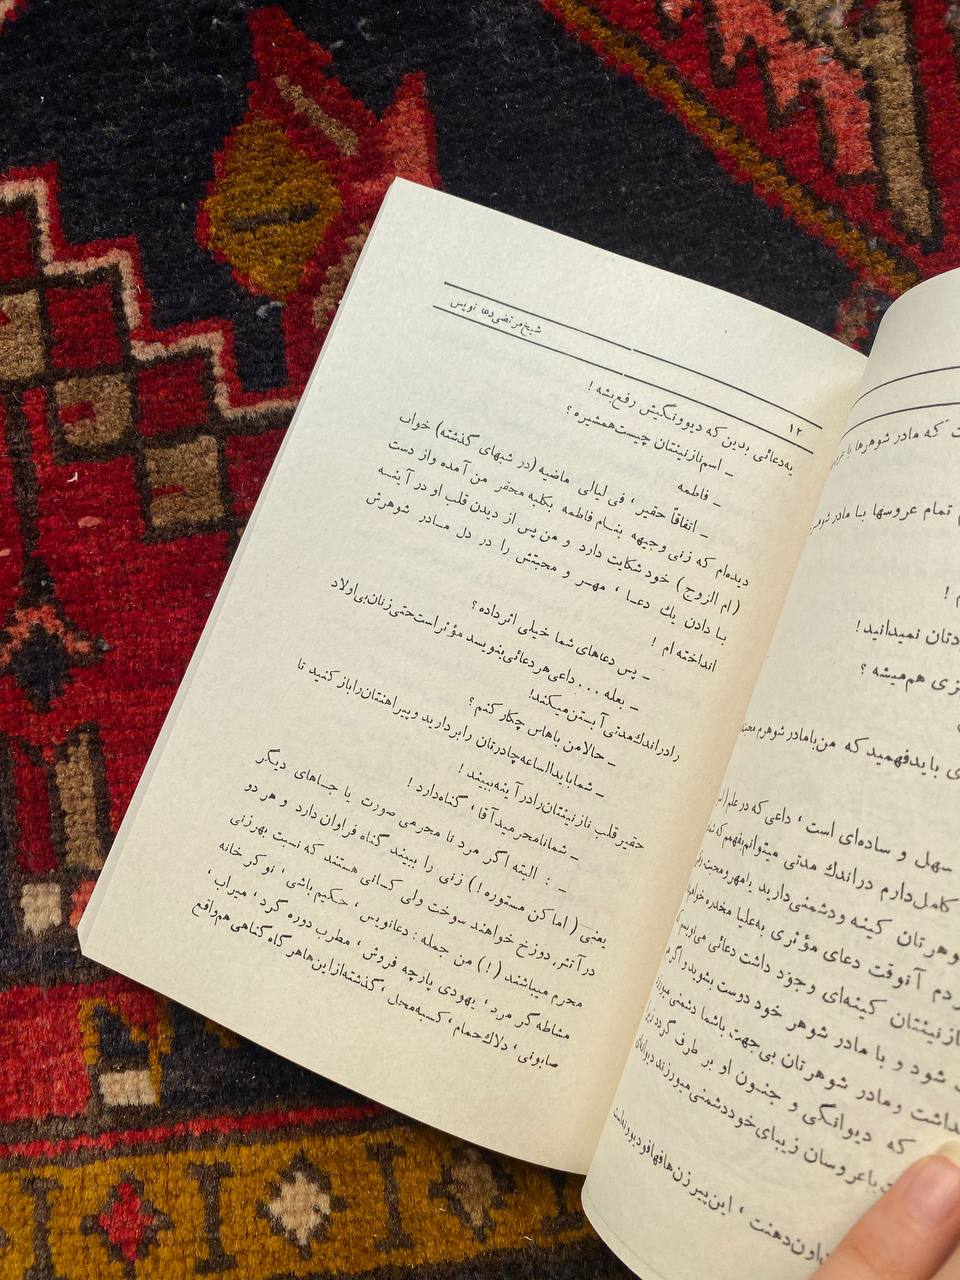 شیخ مرتضی دعا نویس
۱۲
یه دعائی بدین که دیوونگیش رفع بشه !
ـ اسم نازنینتان چیست همشیره ؟
ـ فاطمه
ـ اتفاقاً حقیر ، فی لیالی ماضیه (در شبهای گذشته) خواب
دیده‌ام که زنی وجیهه بنام فاطمه بکلبه محقر من آمده و از دست
(ام الزوج) خود شکایت دارد و من پس از دیدن قلب او در آینه
با دادن یك دعا ، مهر و محبتش را در دل مادر شوهرش
انداخته ام !
ـ پس دعاهای شما خیلی اثر داده ؟
ـ بعله ... داعی هر دعائی بنویسد مؤثر است حتی زنان بی اولاد
را در اندك مدتی آبستن میکند !
ـ حالا من باهاس چکار کنم ؟
ـ شما باید الساعه چادرتان را بردارید و پیراهنتان را باز کنید تا
حقیر قلب نازنینتان را در آینه ببیند !
ـ شما نامحرمید آقا ، گناه دارد !
ـ : البته اگر مرد نا محرمی صورت یا جاهای دیگر
یعنی ( اماکن مستوره ! ) زنی را ببیند گناه فراوان دارد و هر دو
در آتش دوزخ خواهند سوخت ولی کسانی هستند که نسبت بهر زنی
محرم میباشند (!) من جمله : دعانویس ، حکیم باشی ، نوکر خانه
مشاطه گر مرد ، یهودی پارچه فروش ، مطرب دوره گرد ، میراب ،
صابونی ، دلاك حمام ، کسبه محل ، گذشته از این ها هر گاه گناهی هم واقع
که مادر شوهرها با
تمام عروسها با مادر شوهر
!
نمیدانید !
هم میشه ؟
باید فهمید که من با مادر شوهرم
سهل و ساده‌ای است ، داعی که در علم
کامل دارم در اندك مدتی میتوانم بفهمم که
کینه و دشمنی دارید یا مهر و محبت
آنوقت دعای مؤثری به علیا مخدره
نازنینتان کینه‌ای وجود داشت دعائی می‌نویسم
شود و با مادر شوهر خود دوست بشوید و اگر
و مادر شوهرتان بی جهت باشما دشمنی
که دیوانگی و جنون او بر طرف گردد
با عروسان زیبای خود دشمنی میورزند
تو دهنت ، این پیرزن ها